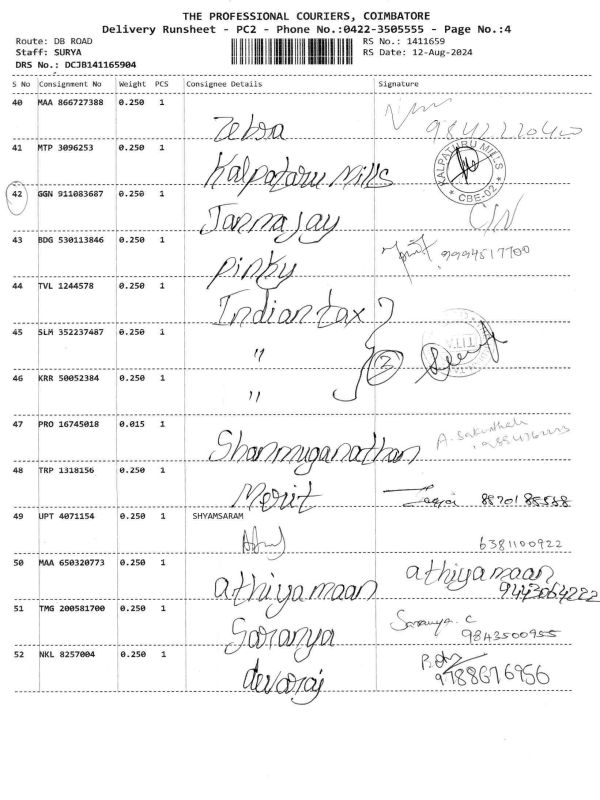 THE PROFESSIONAL COURIERS, COIMBATORE
Delivery Runsheet - PC2 - Phone No.:0422-3505555 - Page No.:4
Route: DB ROAD RS No.: 1411659
Staff: SURYA RS Date: 12-Aug-2024
DRS No.: DCJB141165904
S No Consignment No Weight PCS Consignee Details Signature
40 MAA 866727388 0.250 1
Zebra
41 MTP 3096253 0.250 1
Kalpataru Mills KALPATHARU MILLS * CBE-02 *
42 GGN 911083687 0.250 1
Janmajay C/N
43 BDG 530113846 0.250 1
pinky 9994517700
44 TVL 1244578 0.250 1
Indian tax
45 SLM 352237487 0.250 1
" 3
46 KRR 50052384 0.250 1
"
47 PRO 16745018 0.015 1
Shanmuganathan
48 TRP 1318156 0.250 1
Merit 8870185568
49 UPT 4071154 0.250 1 SHYAMSARAM
6381100922
50 MAA 650320773 0.250 1
athiyamaan athiyamaan
9443064222
51 TMG 200581700 0.250 1
Saranya Saranya. C
9843500955
52 NKL 8257004 0.250 1
devaraj 9788676956